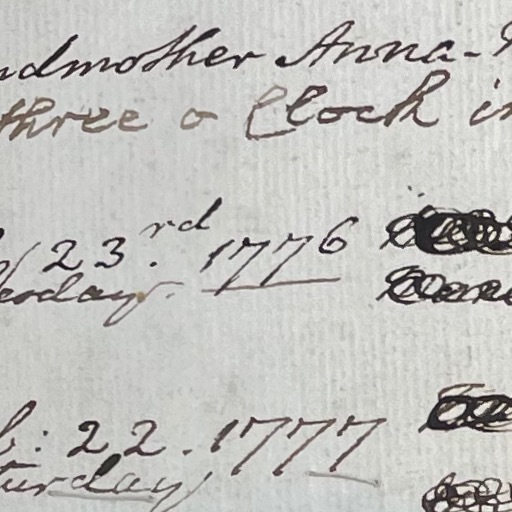 ndmother Anna-
three o Clock in
23.rd 1776
erday.
b: 22. 1777
turday,